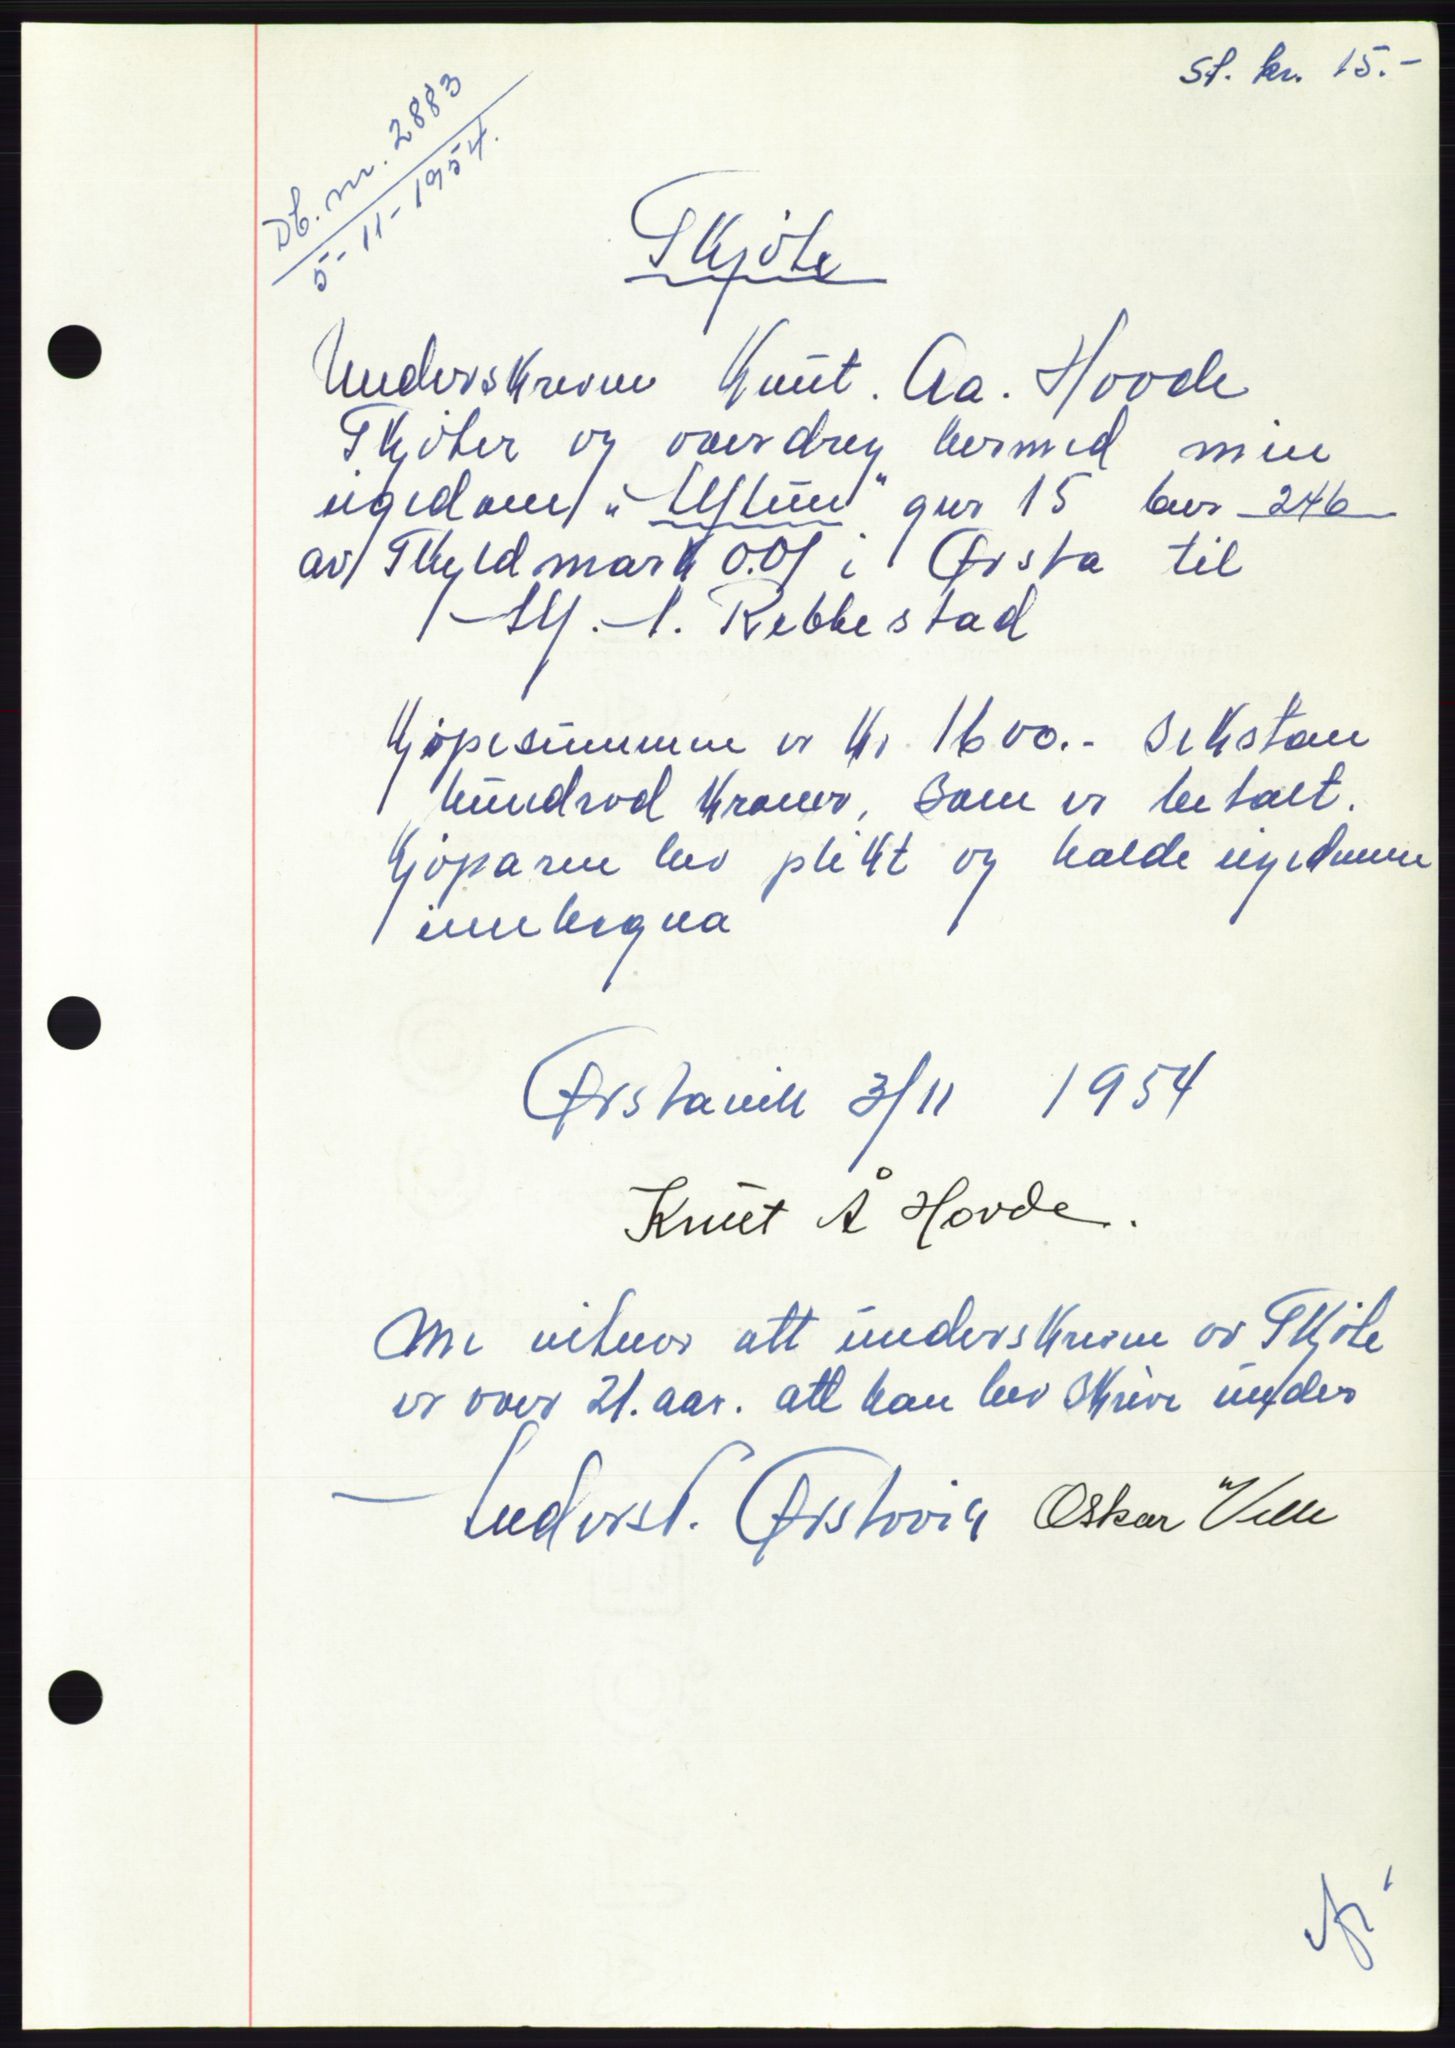 St. kr. 15.-
Db. nr. 2883
5-11-1954.
Skjøte
Underskrevne Knut. Aa. Hovde
Skjøter og overdreg hermed min
eigedom " " gnr 15 bnr 246
av Skyldmark 0.01 i Ørsta til
Rebbestad
Kjøpesummen er Kr 1600.- Sekstan
hundrad Kroner, som er betalt.
Kjøparen hev plikt og halde eigedomen
innhegna
Ørstavik 3/11 1954
Knut Å Hovde.
Me vitner att underskreven av Skjøte
er over 21. aar. att han hev Skrive under
Ørstavik Oskar Velle